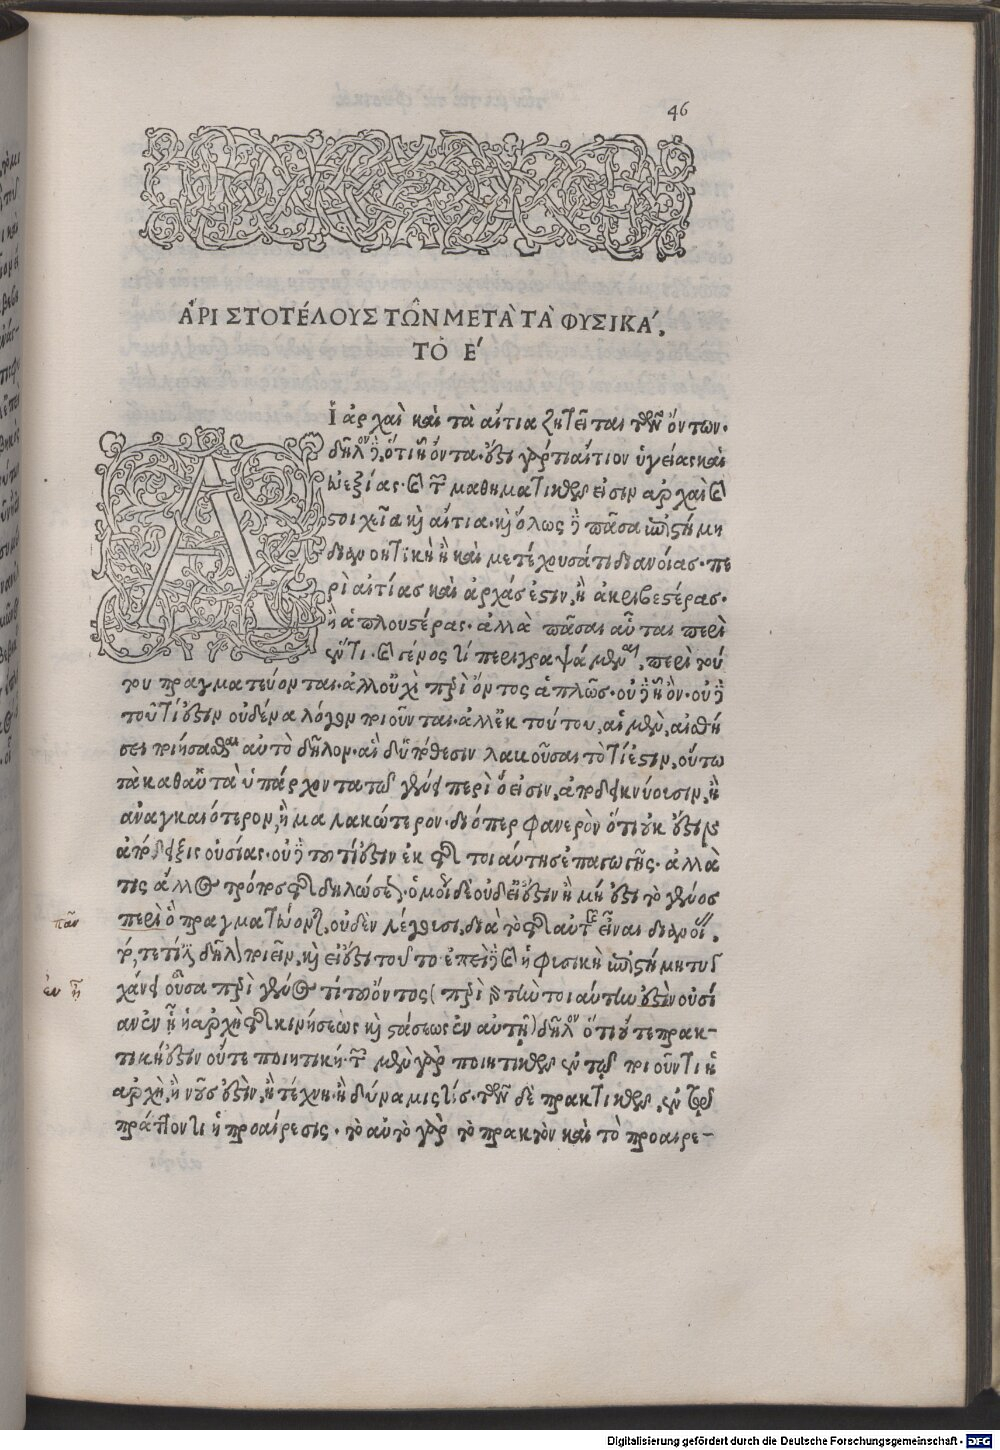 46
ἈΡΙΣΤΟΤΈΛΟΥΣ ΤῶΝ ΜΕΤᾺ ΤᾺ ΦΥΣΙΚΆ.
ΤῸ Ε΄
Α
ἱ ἀρχαὶ καὶ τὰ αἴτια ζητεῖται τῶν ὄντων.
δῆλον δὲ, ὅτι ᾗ ὄντα. ἔστι γάρ τι αἴτιον ὑγείας καὶ
εὐεξίας. καὶ τῶν μαθηματικῶν εἰσιν ἀρχαὶ καὶ
στοιχεῖα καὶ αἴτια. καὶ ὅλως δὲ πᾶσα ἐπιστήμη
διανοητικὴ ἢ καὶ μετέχουσά τι διανοίας. πε
ρὶ αἰτίας καὶ ἀρχάς ἐστιν, ἢ ἀκριβεστέρας.
ἢ ἁπλουστέρας. ἀλλὰ πᾶσαι αὗται περὶ
ἕν τι. καὶ γένος τί περιγραψάμεναι, περὶ τού
του πραγματεύονται. ἀλλ' οὐχὶ περὶ ὄντος ἁπλῶς. οὐδὲ ᾗ ὄν. οὐδὲ
τοῦ τί ἐστιν οὐδένα λόγον ποιοῦνται. ἀλλ' ἐκ τούτου, αἱ μὲν, αἰσθή
σει ποιήσασαι αὐτὸ δῆλον. αἱ δ' ὑπόθεσιν λαβοῦσαι τὸ τί ἐστιν, οὕτω
τὰ καθ' αὑτὰ ὑπάρχοντα τῷ γένει περὶ ὅ εἰσιν, ἀποδεικνύουσιν, ἢ
ἀναγκαιότερον, ἢ μαλακώτερον. διόπερ φανερὸν ὅτι οὐκ ἔστιν
ἀπόδειξις οὐσίας. οὐδὲ τοῦ τί ἐστιν ἐκ τῆς τοιαύτης ἐπαγωγῆς. ἀλλὰ
τις ἄλλος τρόπος τῆς δηλώσεως. ὁμοίως δὲ οὐδ' εἰ ἔστιν ἢ μὴ ἔστι τὸ γένος
περὶ ὃ πραγματεύονται, οὐδὲν λέγουσι, διὰ τὸ τῆς αὐτῆς εἶναι διανοίας.
τό, τε τί ἐστι δῆλον ποιεῖν, καὶ εἰ ἔστι τοῦτο ἐπεὶ δὲ καὶ ἡ φυσικὴ ἐπιστήμη τυγ
χάνει οὖσα περὶ γένος τί τοῦ ὄντος( περὶ γὰρ τὴν τοιαύτην ἐστὶν οὐσί
αν ἐν ᾗ ἡ ἀρχὴ τῆς κινήσεως καὶ στάσεως ἐν αὐτῇ) δῆλον ὅτι οὔτε πρακ-
τική ἐστιν οὔτε ποιητική. τῶν μὲν γὰρ ποιητικῶν ἐν τῷ ποιοῦντι ἡ
ἀρχὴ, ἢ νοῦς ἐστιν, ἢ τέχνη. ἢ δύναμις τίς. τῶν δὲ πρακτικῶν, ἐν τῷ
πράττοντι ἡ προαίρεσις. τὸ αὐτὸ γὰρ τὸ πρακτὸν καὶ τὸ προαιρε-
πᾶν
ἐν ᾗ
Digitalisierung gefördert durch die Deutsche Forschungsgemeinschaft - DFG